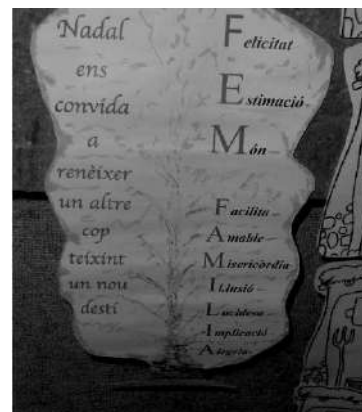 Nadal
ens
convida
a
renèixer
un altre
cop
teixint
un nou
destí
Felicitat
Estimació
Món
Facilita
Amable
Misericòrdia
Il·lusió
Lucidesa
Implicació
Alegria